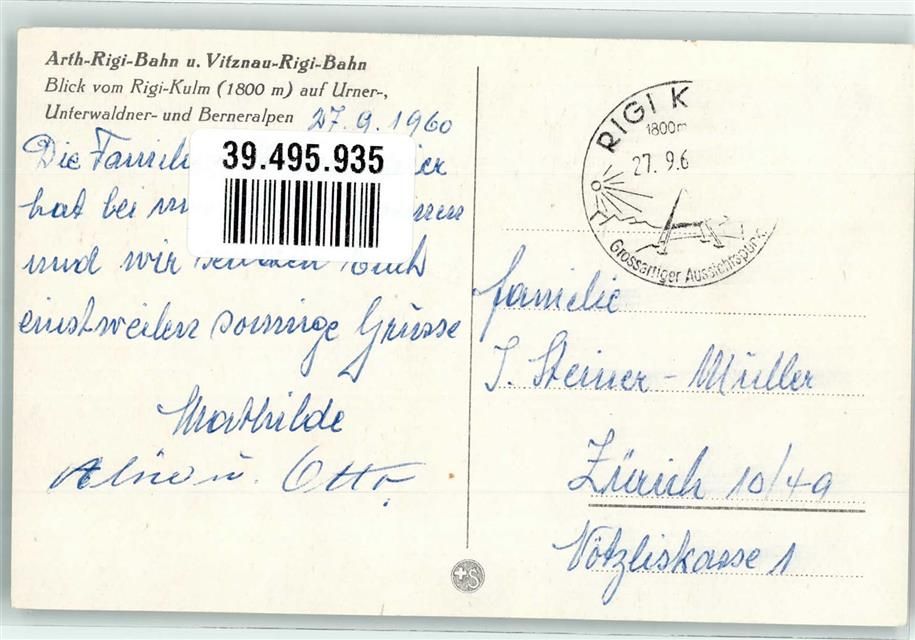 Arth-Rigi-Bahn u. Vitznau-Rigi-Bahn
Blick vom Rigi-Kulm (1800 m) auf Urner-,
Unterwaldner- und Berneralpen 27.9.1960
Die Famili
hat bei
39.495.935
und wir Euch
einstweilen sonnige Grüsse
Mathilde
u. Otto
RIGI K
1800m
27. 9.6
Grossartiger Aussichtspun
Familie
J. Steiner-Müller
Zürich 10/49
1
+S